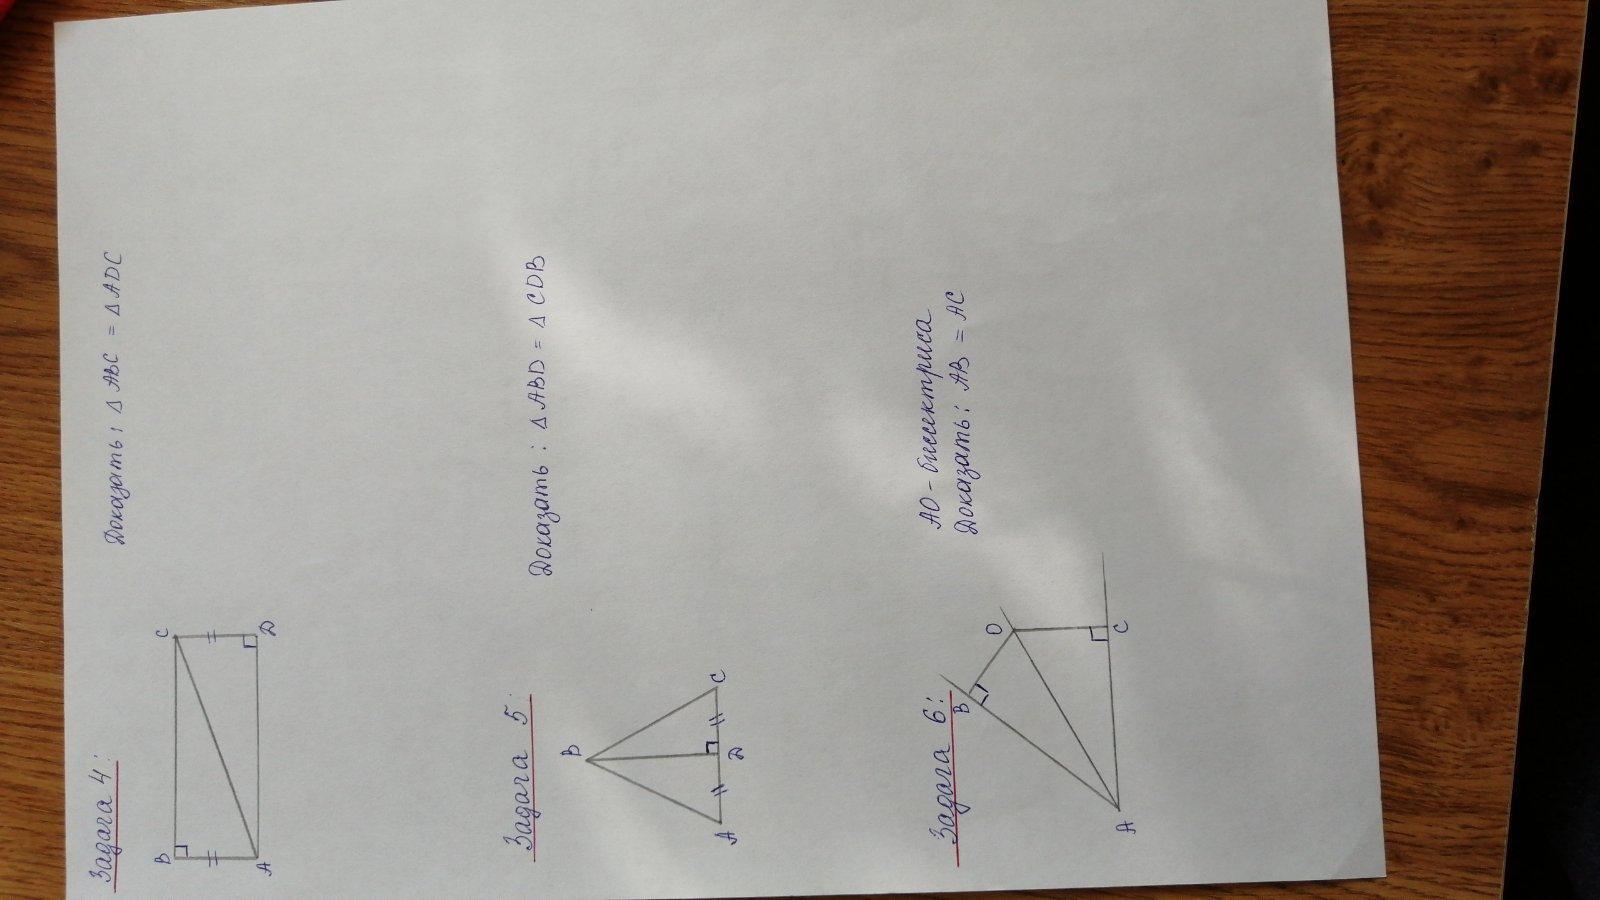 Задача 4:
Доказать: Δ ABC = Δ ADC
B
C
A
D
Задача 5:
Доказать: Δ ABD = Δ CDB
B
A
D
C
Задача 6:
AO - биссектриса
Доказать: AB = AC
B
O
A
C